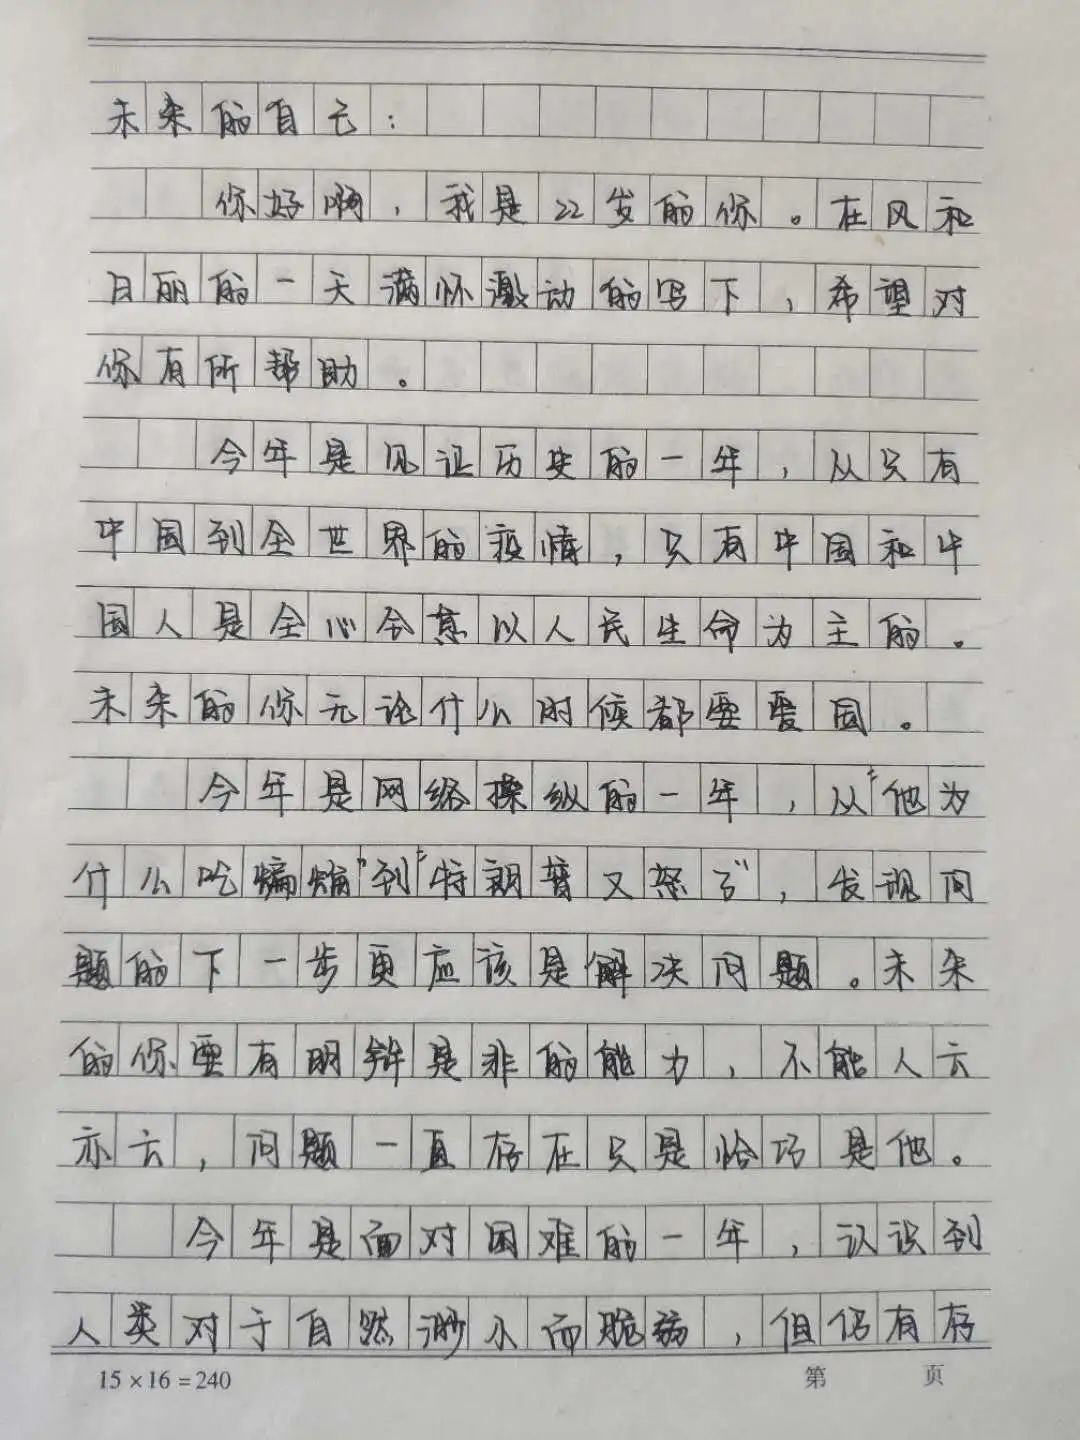 未来的自己：
你好啊，我是22岁的你。在风和
日丽的一天满怀激动的写下，希望对
你有所帮助。
今年是见证历史的一年，从只有
中国到全世界的疫情，只有中国和中
国人是全心全意以人民生命为主的。
未来的你无论什么时候都要爱国。
今年是网络操纵的一年，从“他为
什么吃蝙蝠”到“特朗普又怒了”，发现问
题的下一步更应该是解决问题。未来
的你要有明辨是非的能力，不能人云
亦云，问题一直存在只是恰巧是他。
今年是面对困难的一年，认识到
人类对于自然渺小而脆弱，但仍有存
15×16=240 第 页